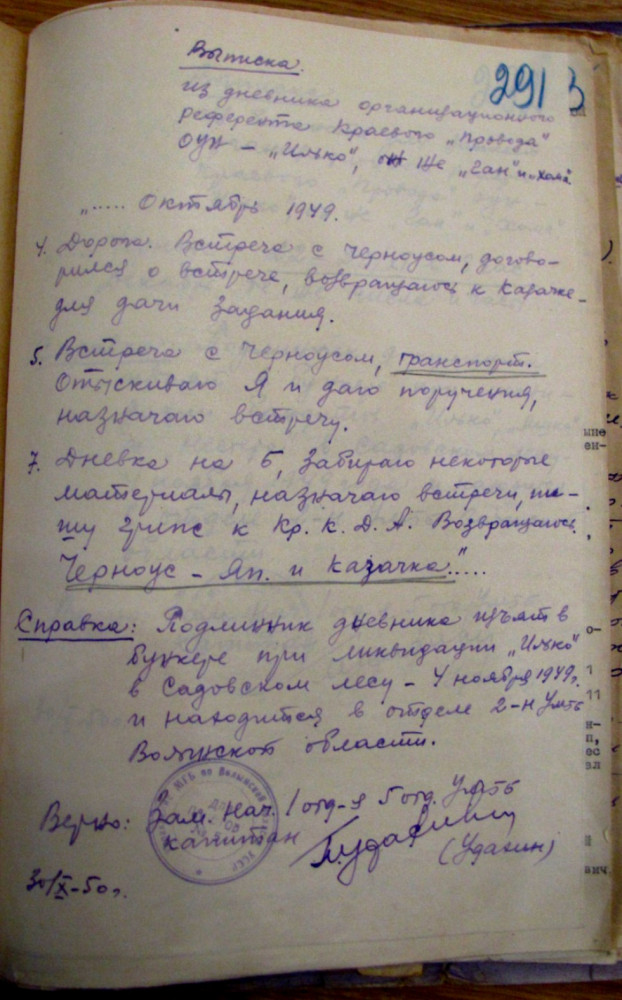 Выписка.
291
из дневника организационного
референта Краевого „Провода"
ОУН – „Илько", он же „Ган" и „Хома".
„..... Октябрь 1949.
4. Дорога. Встреча с Черноусом, догово-
рился о встрече, возвращаюсь к Казачке-
для дачи задания.
5. Встреча с Черноусом, транспорт.
Отыскиваю Я и даю поручения,
назначаю встречу.
7. Дневка на Б, забираю некоторые
материалы, назначаю встречи, пи-
шу грипс к Кр. К. Д. А. Возвращаюсь.
Черноус – Яп. и Казачка."....
Справка: Подлинник дневника изъят в
бункере при ликвидации „Илько"
в Садовском лесу – 4 ноября 1949 г.
и находится в отделе 2-Н УМГБ
Волынской области.
Верно: Зам. нач. 1 отд-я 5 отд. УМГБ
капитан
(Удахин)
30/X-50 г.
МГБ по Волынской
УССР